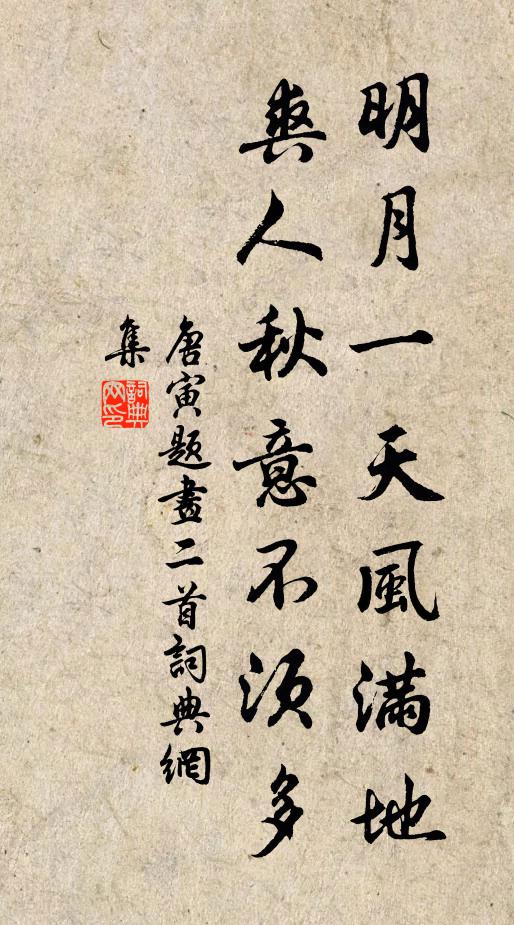 明月一天風滿地
爽人秋意不須多
唐寅題畫二首詞典網
集
詞典
网印